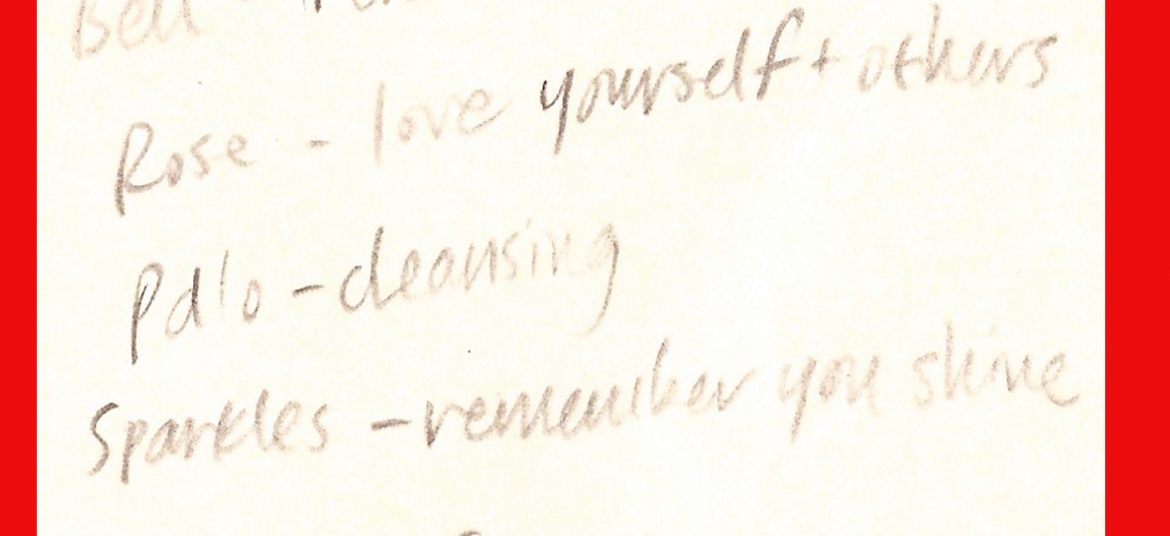 Bell -
Rose - love yourself + others
Palo - cleansing
Sparkles - remember you shine